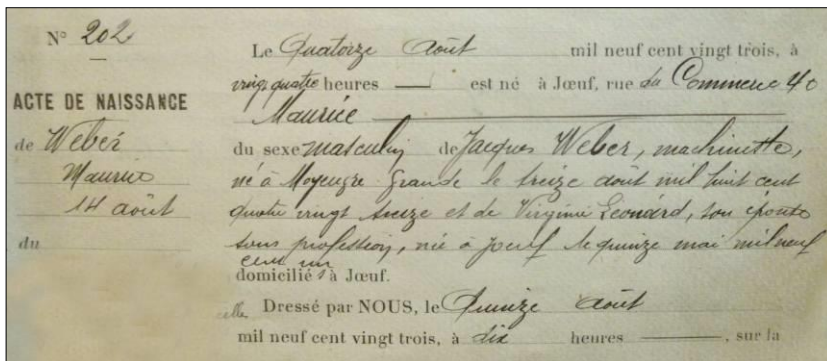 N° 202
ACTE DE NAISSANCE
de Weber
Maurice
14 août
du
Le Quatorze Août mil neuf cent vingt trois, à
vingt quatre heures — est né à Jœuf, rue du Commerce 40
Maurice
du sexe masculin de Jacques Weber, machiniste,
né à Moyeuvre Grande le treize août mil huit cent
quatre vingt treize et de Virginie Léonard, son épouse
sans profession, née à Jœuf le quinze mai mil neuf
cent un
domiciliés à Jœuf.
Dressé par NOUS, le Quinze Août
mil neuf cent vingt trois, à dix heures —, sur la